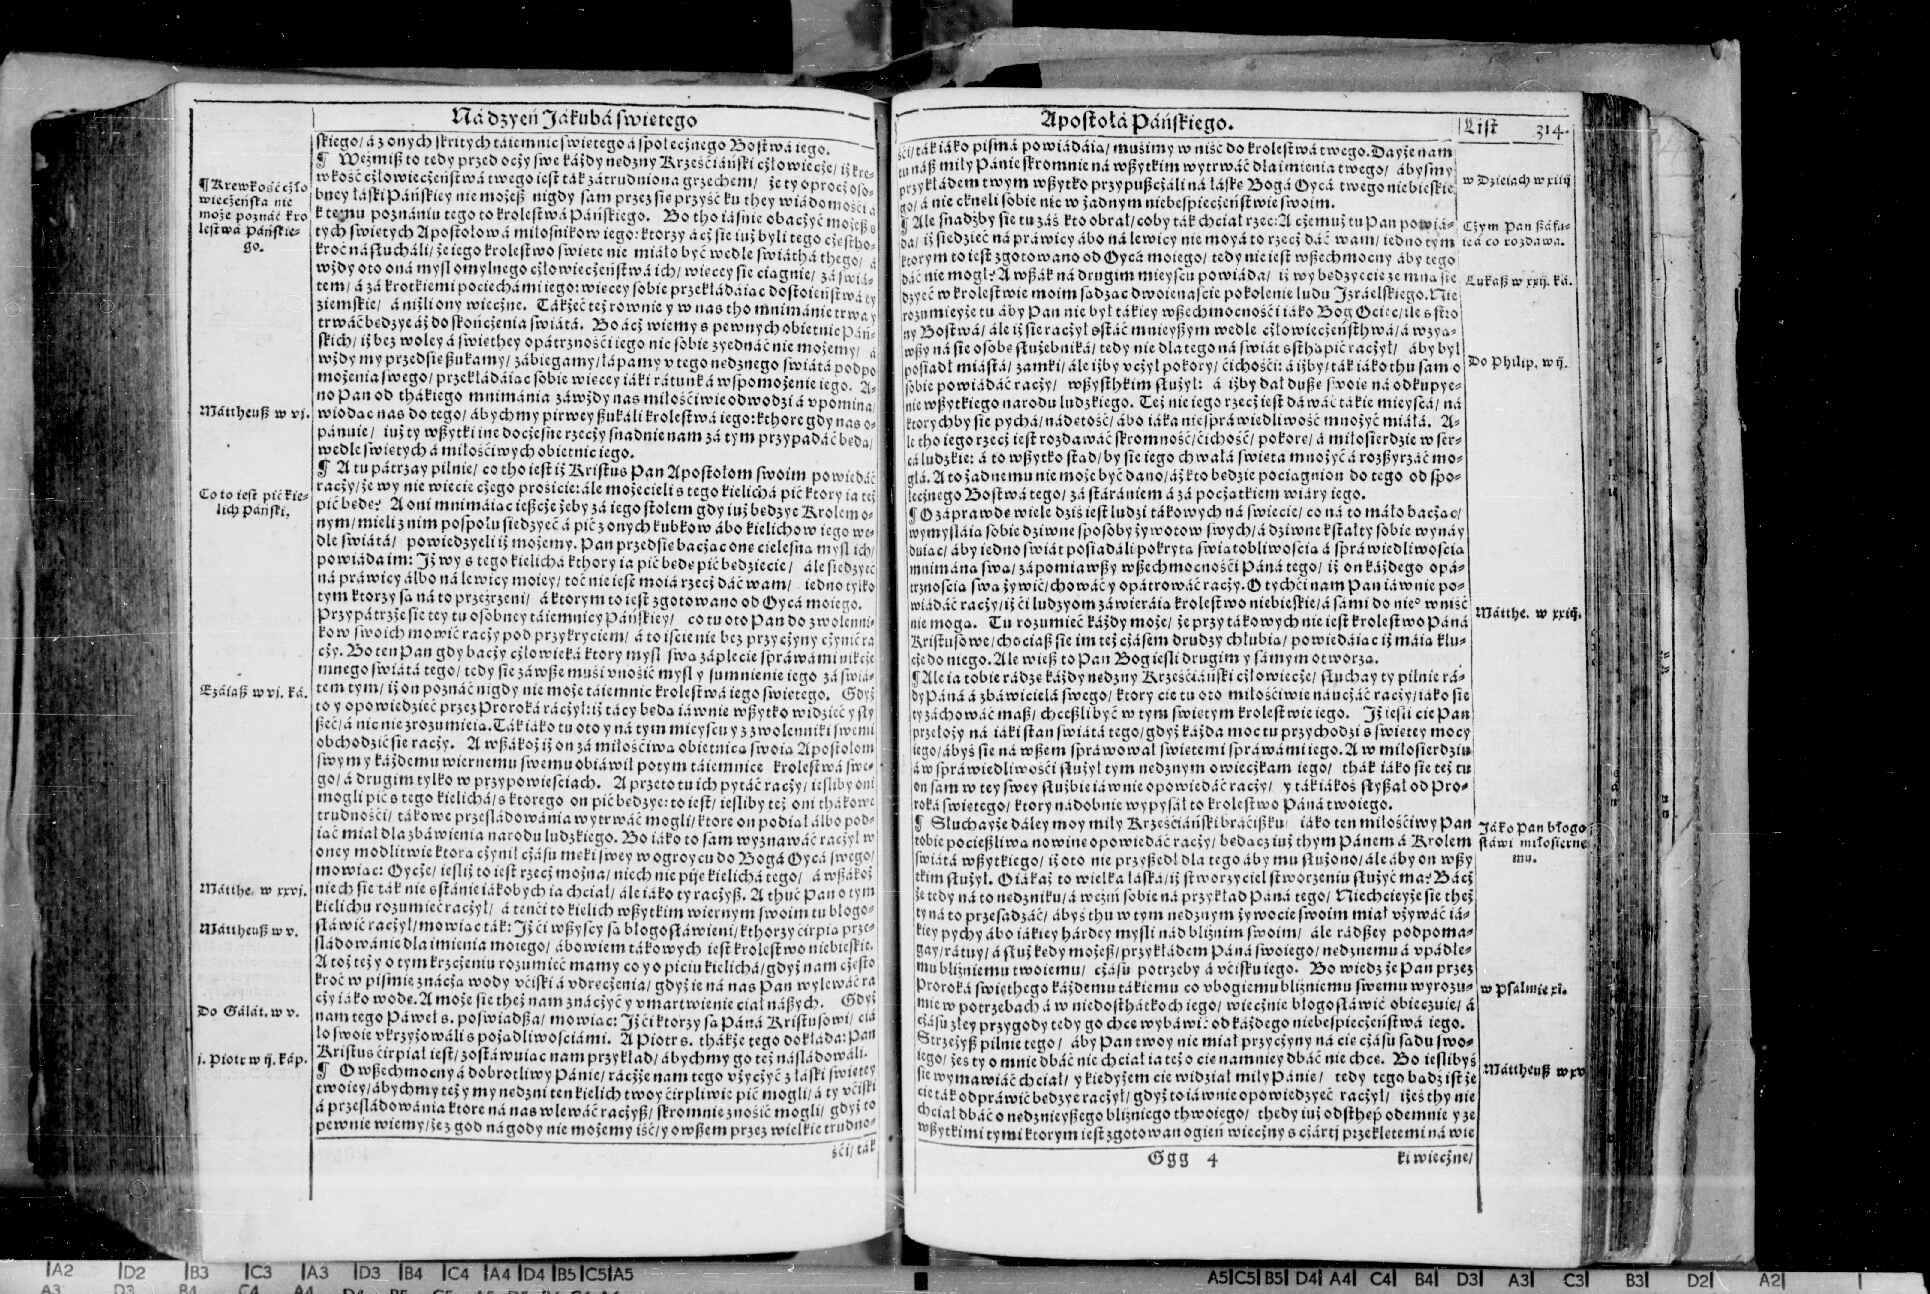 Ná dzyeń Jákubá swietego
skiego/ á z onych skritych táiemnic swietego á społecżnego Bostwá iego.
¶ Weźmiß to tedy przed ocży swe káżdy nedzny Krześćiáński cżłowiecże/ iż kre-
wkość cżłowiecżeństwá twego iest ták zátrudniona grzechem/ że ty oprocż oso-
bney łáski Páńskiey nie możeß nigdy sam przez sie przyść ku they wiádomośći á
k temu poznániu tego to krolestwá Páńskiego. Bo tho iásnie obacżyć możeß s
tych swietych Apostołow á miłosnikow iego: ktorzy ácż sie iuż byli tego cżestho-
kroć násłucháli/ że iego krolestwo swiete nie miáło być wedle swiáthá thego/ á
wżdy oto oná mysl omylnego cżłowiecżeństwá ich/ wiecey sie ciągnie/ zá swiá-
tem/ á zá krotkiemi pociechámi iego: wiecey sobie przekłádáiąc dostoieństwá ty
ziemskie/ á niżli ony wiecżne. Tákżeć też rownie y w nas tho mnimánie trwa y
trwáć będzye áż do skońcżenia swiátá. Bo ácż wiemy s pewnych obietnic Páń-
skich/ iż bez woley á swiethey opátrznośći iego nic sobie zyednáć nie możemy/ á
wżdy my przedsie ßukamy/ zábiegamy/ łápamy v tego nedznego swiátá podpo
możenia swego/ przekłádáiąc sobie wiecey iáki rátunk á wspomożenie iego. A-
no Pan od thákiego mnimánia záwżdy nas miłośćiwie odwodzi á vpomina/
wiodąc nas do tego/ ábychmy pirwey ßukáli krolestwá iego: kthore gdy nas o-
pánuie/ iuż ty wßytki ine docżesne rzecży snadnie nam zá tym przypádáć będą/
wedle swietych á miłośćiwych obietnic iego.
¶ A tu pátrzay pilnie/ co tho iest iż Kristus Pan Apostołom swoim powiedáć
racży/ że wy nie wiecie cżego prosicie: ále możecieli s tego kielichá pić ktory ia też
pić będę? A oni mnimáiąc ießcże żeby zá iego stołem gdy iuż będzye Krolem o-
nym/ mieli z nim pospołu siedzyeć á pić z onych kubkow ábo kielichow iego we-
dle swiátá/ powiedzyeli iż możemy. Pan przedsie bacżąc one cielesną mysl ich/
powiáda im: Jż wy s tego kielichá kthory ia pić będę pić będziecie/ ále siedzyeć
ná práwicy álbo ná lewicy moiey/ toć nie iest moiá rzecż dáć wam/ iedno tylko
tym ktorzy są ná to przeźrzeni/ á ktorym to iest zgotowano od Oycá moiego.
Przypátrzże sie tey tu osobney táiemnicy Páńskiey/ co tu oto Pan do zwolenni-
kow swoich mowić racży pod przykryciem/ á to iścienie bez przycżyny cżynić ra
cży. Bo ten Pan gdy bacży cżłowieká ktory mysl swą záplecie spráwámi nikcże
mnego swiátá tego/ tedy sie záwße musi vnośić mysl y sumnienie iego zá swiá-
tem tym/ iż on poznáć nigdy nie może táiemnic krolestwá iego swietego. Gdyż
to y opowiedzieć przez Proroká racżył: iż tácy będą iáwnie wßytko widzieć y sły
ßeć/ á nic nie zrozumieią. Ták iáko tu oto y ná tym mieyscu y z zwolenniki swemi
obchodzić sie racży. A wßákoż iż on zá miłośćiwą obietnicą swoią Apostołom
swym y káżdemu wiernemu swemu obiáwił potym táiemnice krolestwá swe-
go/ á drugim tylko w przypowieściach. A przeto tu ich pytáć racży/ iesliby oni
mogli pić s tego kielichá/ s ktorego on pić będzye: to iest/ iesliby też oni thákowe
trudnośći/ tákowe prześládowánia wytrwáć mogli/ ktore on podiął álbo pod-
iąć miał dla zbáwienia narodu ludzkiego. Bo iáko to sam wyznáwáć racżył w
oney modlitwie ktorą cżynił cżásu męki swey w ogroycu do Bogá Oycá swego/
mowiąc: Oycże/ iesliż to iest rzecż można/ niech nie piję kielichá tego/ á wßákoż
niech sie ták nie sstánie iákobych ia chciał/ ále iáko ty racżyß. A thuć Pan o tym
kielichu rozumieć racżył/ á tenći to kielich wßytkim wiernym swoim tu błogo-
słáwić racżył/ mowiąc ták: Jż ći wßyscy są błogosłáwieni/ kthorzy cirpią prze-
śládowánie dla imienia moiego/ ábowiem tákowych iest krolestwo niebieskie.
A toż też y o tym krzcżeniu rozumieć mamy co y o piciu kielichá/ gdyż nam cżęsto
kroć w piśmie znácżą wody vćiski á vdręcżenia/ gdyż ie ná nas Pan wylewáć ra
cży iáko wodę. A może sie theż nam znácżyć y vmartwienie ciáł náßych. Gdyż
nam tego Páweł s. poświadßa/ mowiąc: Jż ći ktorzy są Páná Kristusowi/ ciá
ło swoie vkrzyżowáli s pożądliwosciámi. A Piotr s. thákże tego dokłáda: Pan
Kristus ćirpiał iest/ zostáwuiąc nam przykład/ ábychmy go też násládowáli.
¶ O wßechmocny á dobrotliwy Pánie/ racżże nam tego vżycżyć z łáski swietey
twoiey/ ábychmy też y my nędzni ten kielich twoy ćirpliwie pić mogli/ á ty vćiski
á prześládowánia ktore ná nas wlewáć racżyß/ skromnie znośić mogli/ gdyż to
pewnie wiemy/ że z god ná gody nie możemy iść/ y owßem przez wielkie trudno-
śći/ ták
¶ Krewkość cżło
wiecżeńska nie
może poznáć kro
lestwá Páńskie-
go.
Máttheuß w vj.
Co to iest pić kie-
lich Páński.
Ezáiaß w vj. ká.
Mátthe. w xxvj.
Máttheuß w v.
Do Gálát. w v.
j. Piotr w ij. káp.
Apostołá Páńskiego.
List 314.
śći/ ták iáko pismá powiádáią/ musimy wniść do krolestwá twego. Dayże nam
tu náß miły Pánie skromnie ná wßytkim wytrwáć dla imienia twego/ ábysmy
przykłádem twym wßytko przypußcżáli ná łáskę Bogá Oycá twego niebieskie
go/ á nic ckneli sobie nic w żadnym niebespiecżeństwie swoim.
¶ Ale snadżby sie tu záś kto obrał/ coby ták chciał rzec: A cżemuż tu Pan powiá-
da/ iż siedzieć ná práwicy ábo ná lewicy nie moyá to rzecż dáć wam/ iedno tym
ktorym to iest zgotowano od Oycá moiego/ tedy nie iest wßechmocny áby tego
dáć nie mogł? A wßák ná drugim mieyscu powiáda/ iż wy będzyecie ze mną sie
dzyeć w krolestwie moim sądząc dwoienaście pokolenie ludu Jzráelskiego. Nie
rozumieyże tu áby Pan nie był tákiey wßechmocnośći iáko Bog Ociec/ ile s stro
ny Bostwá/ ále iż sie racżył sstáć mnieyßym wedle cżłowiecżeństhwá/ á wzyą-
wßy ná sie osobę służebniká/ tedy nie dla tego ná swiát ssthąpić racżył/ áby był
posiadł miástá/ zamki/ ále iżby vcżył pokory/ ćichośći: á iżby/ ták iáko thu sam o
sobie powiádáć racży/ wßysthkim służył: á iżby dał dußę swoię ná odkupye-
nie wßytkiego narodu ludzkiego. Też nie iego rzecż iest dáwáć tákie mieyscá/ ná
ktorychby sie pychá/ nádetość/ ábo iáka niespráwiedliwość mnożyć miáłá. A-
le tho iego rzecż iest rozdawáć skromność/ ćichość/ pokorę/ á miłosierdzie w ser-
cá ludzkie: á to wßytko stąd/ by sie iego chwałá święta mnożyć á rozßyrzáć mo-
głá. A to żadnemu nie może być dano/ áż kto będzie pociągnion do tego od spo-
łecżnego Bostwá tego/ zá stárániem á zá pocżątkiem wiáry iego.
¶ O záprawdę wiele dziś iest ludzi tákowych ná swiecie/ co ná to máło bacżąc/
wymyśláią sobie dziwne sposoby żywotow swych/ á dziwne kstałty sobie wynáy
duiąc/ áby iedno swiát posiadáli pokrytą swiątobliwością á spráwiedliwością
mnimáną swą/ zápomiawßy wßechmocnośći Páná tego/ iż on káżdego opá-
trznością swą żywić/ chowáć y opátrowáć racży. O tychći nam Pan iáwnie po-
wiádáć racży/ iż ći ludzyom záwieráią krolestwo niebieskie/ á sámi do nie° wniść
nie mogą. Tu rozumieć káżdy może/ że przy tákowych nie iest krolestwo Páná
Kristusowe/ chociaß sie im też cżásem drudzy chlubią/ powiedáiąc iż máią klu-
cże do niego. Ale wieß to Pan Bog iesli drugim y sámym otworzą.
¶ Ale ia tobie rádzę káżdy nędzny Krześćiáński cżłowiecże/ słuchay ty pilnie rá-
dy Páná á zbáwicielá swego/ ktory cie tu oto miłośćiwie náucżáć racży/ iáko sie
ty záchowáć maß/ chceßli być w tym swietym krolestwie iego. Jż iesli cie Pan
przełoży ná iáki stan swiátá tego/ gdyż káżda moc tu przychodzi s swietey mocy
iego/ ábyś sie ná wßem spráwował swietemi spráwámi iego. A w miłosierdziu
á w spráwiedliwośći służył tym nędznym owiecżkam iego/ thák iáko sie też tu
on sam w tey swey służbie iáwnie opowiedáć racży/ y ták iákoś słyßał od Pro-
roká swietego/ ktory nadobnie wypysał to krolestwo Páná twoiego.
¶ Słuchayże dáley moy miły Krześćiáński bráćißku/ iáko ten miłośćiwy Pan
tobie pocießliwą nowinę opowiedáć racży/ będąc iuż thym Pánem á Krolem
swiátá wßytkiego/ iż oto nie przyßedł dla tego áby mu służono/ ále áby on wßy
tkim służył. O iákaż to wielka łáska/ iż stworzyciel stworzeniu służyć ma? Bácż
że tedy ná to nędzniku/ á weźmi sobie ná przykład Páná tego/ Niechcieyże sie też
ty ná to przesadzáć/ ábyś thu w tym nędznym żywocie swoim miał vżywáć iá-
kiey pychy ábo iákiey hárdey mysli nád bliźnim swoim/ ále rádßey podpomá-
gay/ rátuy/ á służ kędy możeß/ przykłádem Páná swoiego/ nędznemu á vpádłe-
mu bliźniemu twoiemu/ cżásu potrzeby á vćisku iego. Bo wiedz że Pan przez
Proroká swiethego káżdemu tákiemu co vbogiemu bliźniemu swemu wyrozu-
mie w potrzebach á w niedosthátkoch iego/ wiecżnie błogosłáwić obiecuie/ á
cżásu złey przygody tedy go chce wybáwić od káżdego niebespiecżeństwá iego.
Strzeżyß pilnie tego/ áby Pan twoy nie miał przycżyny ná cie cżásu sądu swo-
iego/ żeś ty o mnie dbáć nie chciał ia też o cię namniey dbáć nie chcę. Bo iesliby ś
sie wymáwiáć chciał/ y kiedyżem cie widział miły Pánie/ tedy tego bądź ist że
cie ták odpráwić będzye racżył/ gdyż to iáwnie opowiedzyeć racżył/ iżeś thy nie
chciał dbáć o nędznieyßego bliźniego thwoiego/ thedy iuż odsthęp odemnie y ze
wßytkimi tymi ktorym iest zgotowan ogień wiecżny s cżárty przeklętemi ná wie
Ggg 4 ki wiecżne/
w Dzieiach w xiiij
Cżym Pan ßáfu-
ie á co rozdawa.
Lukaß w xxij. ká.
Do Philip. w ij.
Mátthe. w xxiij.
Jáko Pan błogo
słáwi miłosierne
mu.
w Psalmie xl.
Máttheuß w xv